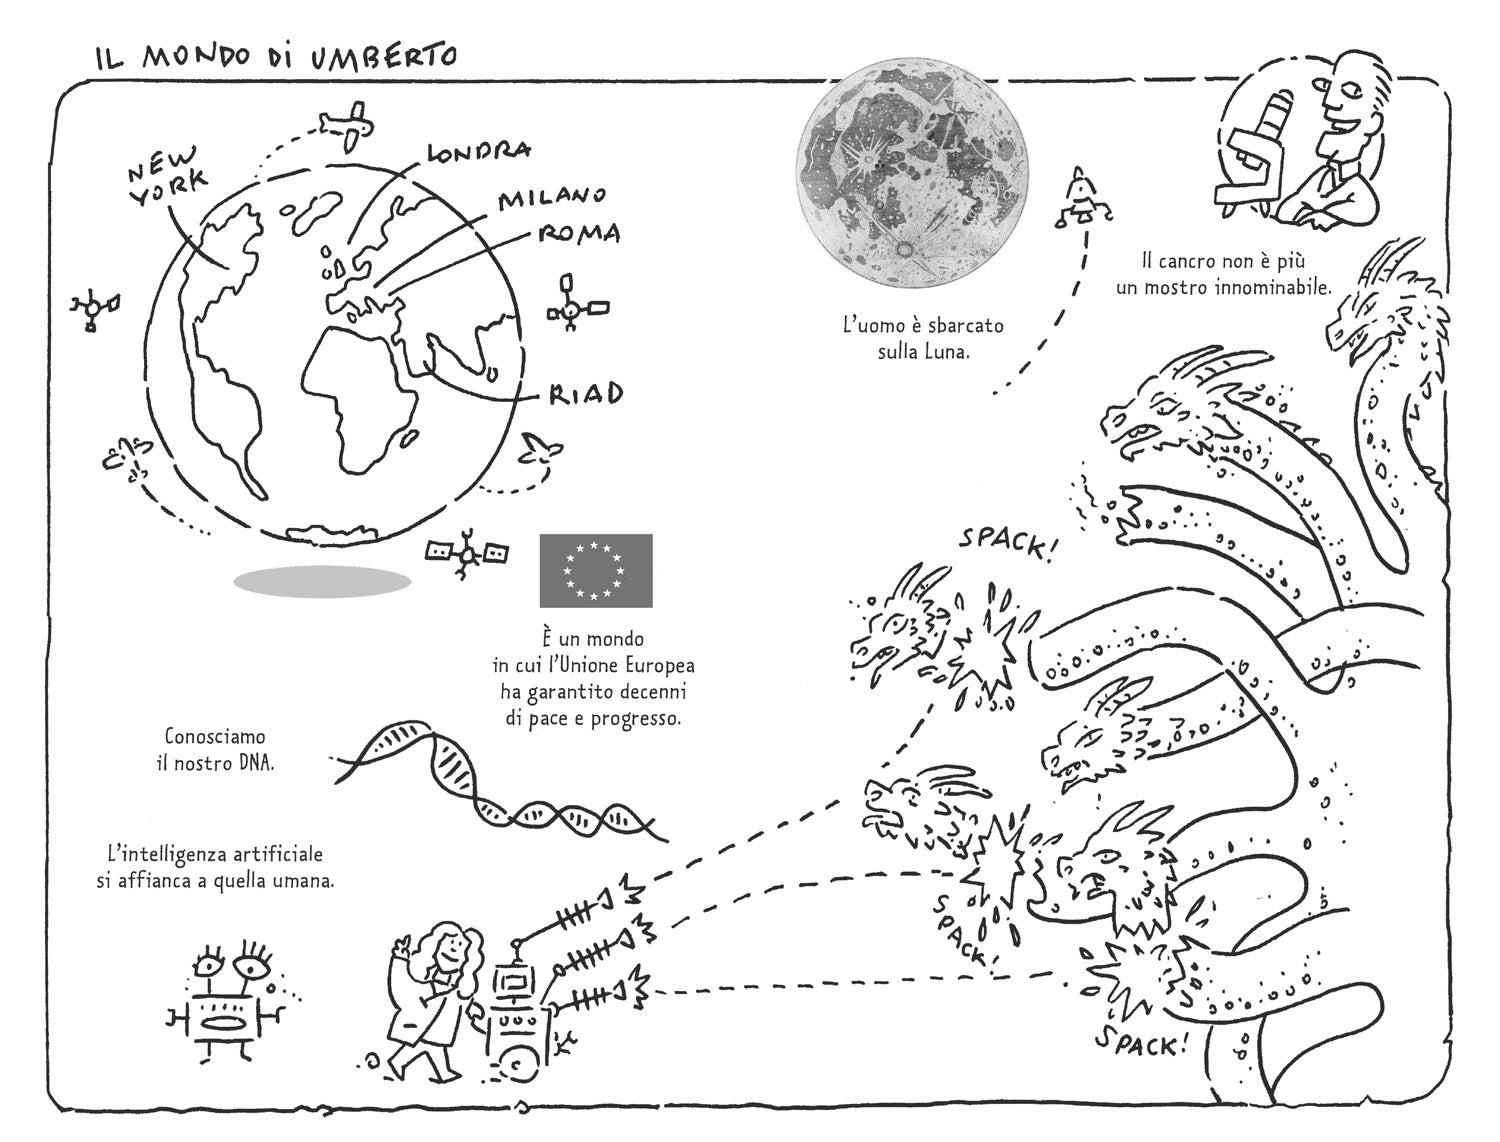 IL MONDO DI UMBERTO
NEW
YORK
LONDRA
MILANO
ROMA
RIAD
L'uomo è sbarcato
sulla Luna.
Il cancro non è più
un mostro innominabile.
È un mondo
in cui l'Unione Europea
ha garantito decenni
di pace e progresso.
Conosciamo
il nostro DNA.
L'intelligenza artificiale
si affianca a quella umana.
SPACK!
SPACK!
SPACK!